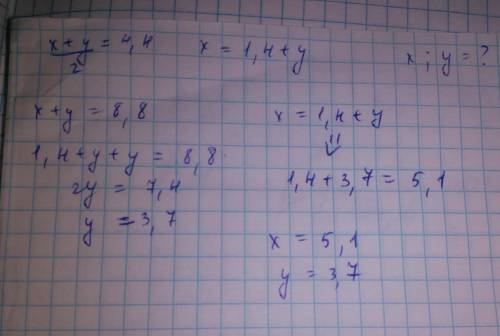 x + y / 2 = 4,4 x = 1,4 + y x ; y = ?
x + y = 8,8 x = 1,4 + y
1,4 + y + y = 8,8
2y = 7,4 1,4 + 3,7 = 5,1
y = 3,7
x = 5,1
y = 3,7